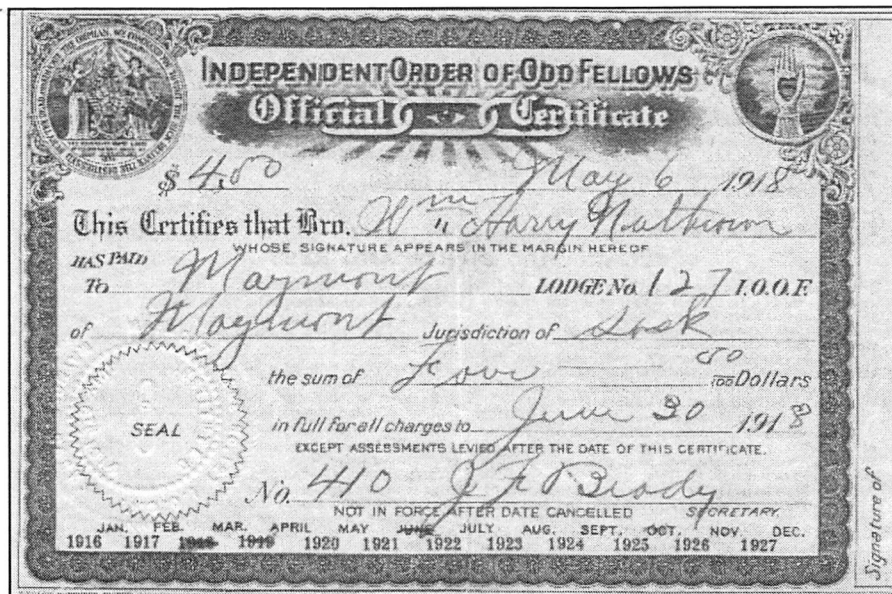 INDEPENDENT ORDER OF ODD FELLOWS
Official Certificate
$ 4.50 May 6 1918
This Certifies that Bro. Wm Harry
WHOSE SIGNATURE APPEARS IN THE MARGIN HEREOF
HAS PAID
To Maymont LODGE No. 127 I.O.O.F.
of Maymont Jurisdiction of Sask
the sum of Four 50/100 Dollars
in full for all charges to June 30 1918
EXCEPT ASSESSMENTS LEVIED AFTER THE DATE OF THIS CERTIFICATE.
SEAL
No. 410 J F Brody
NOT IN FORCE AFTER DATE CANCELLED SECRETARY.
JAN. FEB. MAR. APRIL MAY JUNE JULY AUG. SEPT. OCT. NOV. DEC.
1916 1917 1918 1919 1920 1921 1922 1923 1924 1925 1926 1927
Signature of